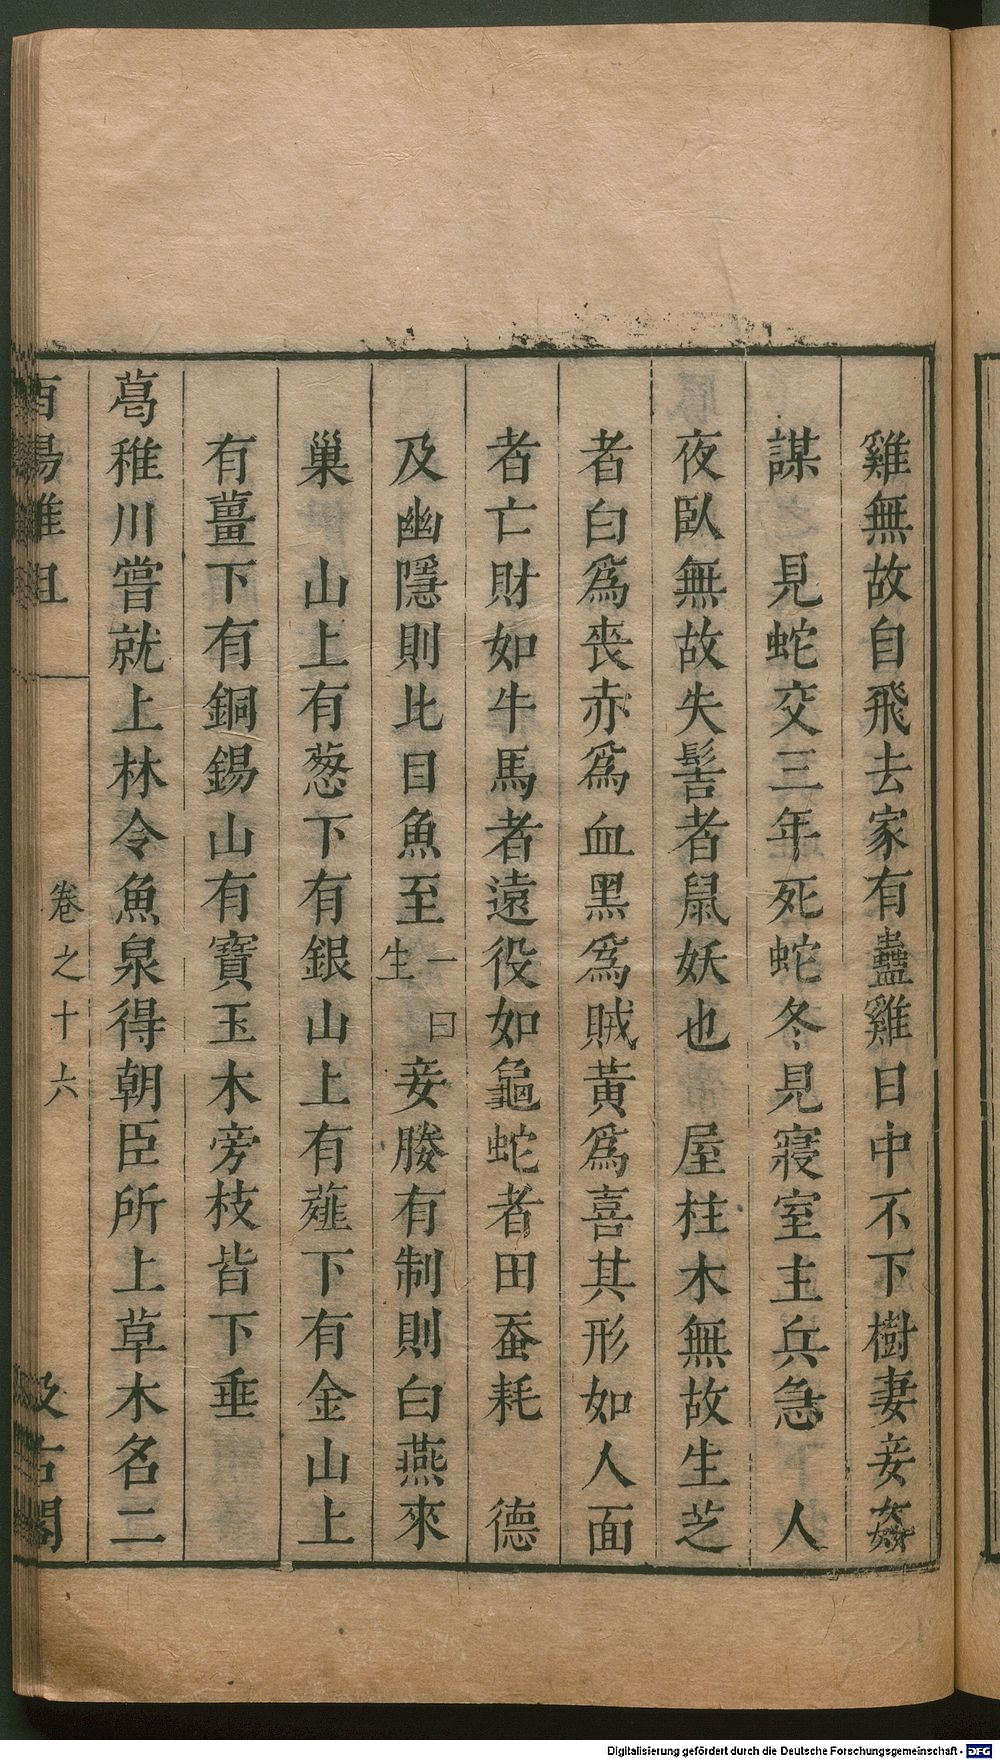 雞無故自飛去家有蠱雞日中不下樹妻妾姦
謀　見蛇交三年死蛇冬見寢室主兵急　人
夜臥無故失髻者鼠妖也　屋柱木無故生芝
者白爲喪赤爲血黑爲賊黃爲喜其形如人面
者亡財如牛馬者遠役如龜蛇者田蚕耗　德
及幽隱則比目魚至一曰生妾媵有制則白燕來
巢　山上有葱下有銀山上有薤下有金山上
有薑下有銅錫山有寶玉木旁枝皆下垂
葛稚川嘗就上林令魚泉得朝臣所上草木名二
酉陽雜俎　卷之十六　汲古閣
Digitalisierung gefördert durch die Deutsche Forschungsgemeinschaft - DFG